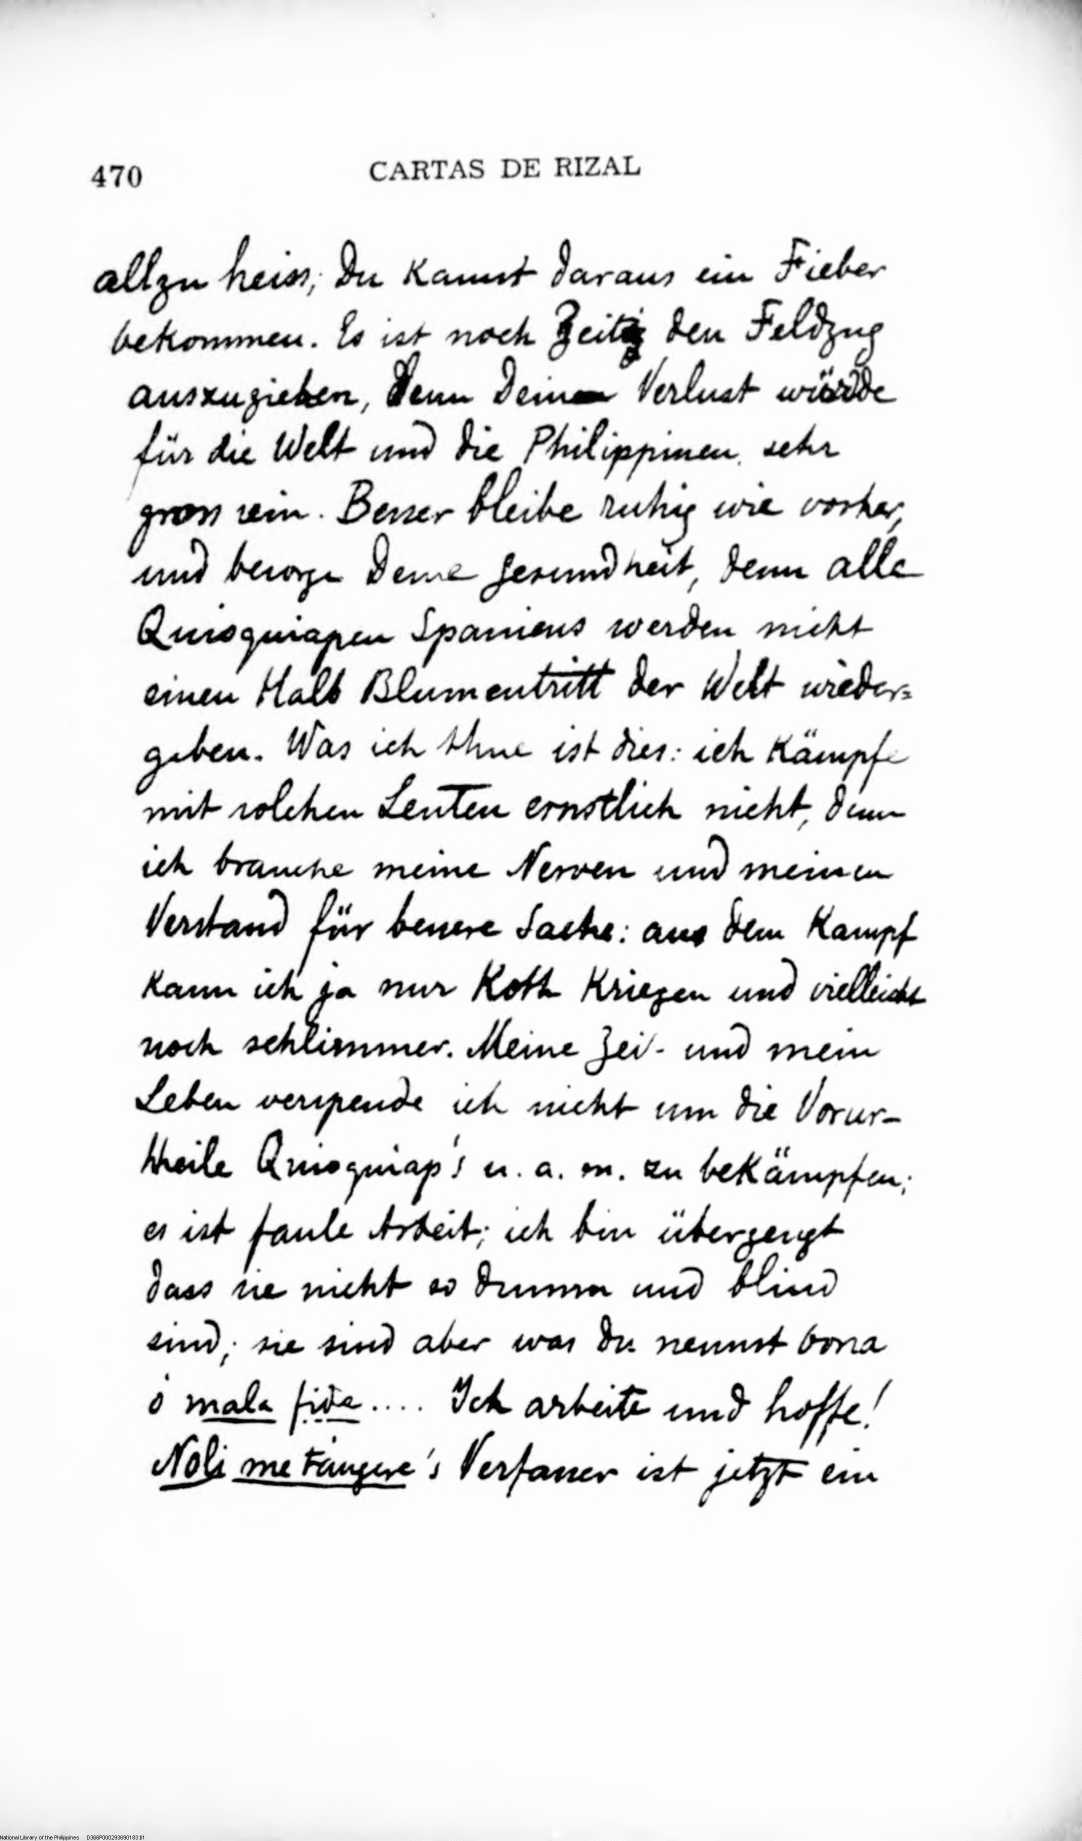 470 CARTAS DE RIZAL
allzu heiss; Du kannst daraus ein Fieber
bekommen. Es ist noch Zeit den Feldzug
auszugieben, denn Deinen Verlust würde
für die Welt und die Philippinen sehr
gross sein. Besser bleibe ruhig wie vorher,
und besorge Deine Gesundheit, denn alle
Quioquiapen Spaniens werden nicht
einen Halb Blumentritt der Welt wieder=
geben. Was ich thue ist dies: ich kämpfe
mit solchen Leuten ernstlich nicht, denn
ich brauche meine Nerven und meinen
Verstand für bessere Sache: aus dem Kampf
kann ich ja nur Koth kriegen und vielleicht
noch schlimmer. Meine Zeit und mein
Leben verspende ich nicht um die Vorur-
theile Quioquiap's u. a. m. zu bekämpfen;
es ist faule Arbeit; ich bin überzeugt
dass sie nicht so dumm und blind
sind; sie sind aber was du nennst bona
ó mala fide .... Ich arbeite und hoffe!
Noli me tángere's Verfasser ist jetzt ein
National Library of the Philippines